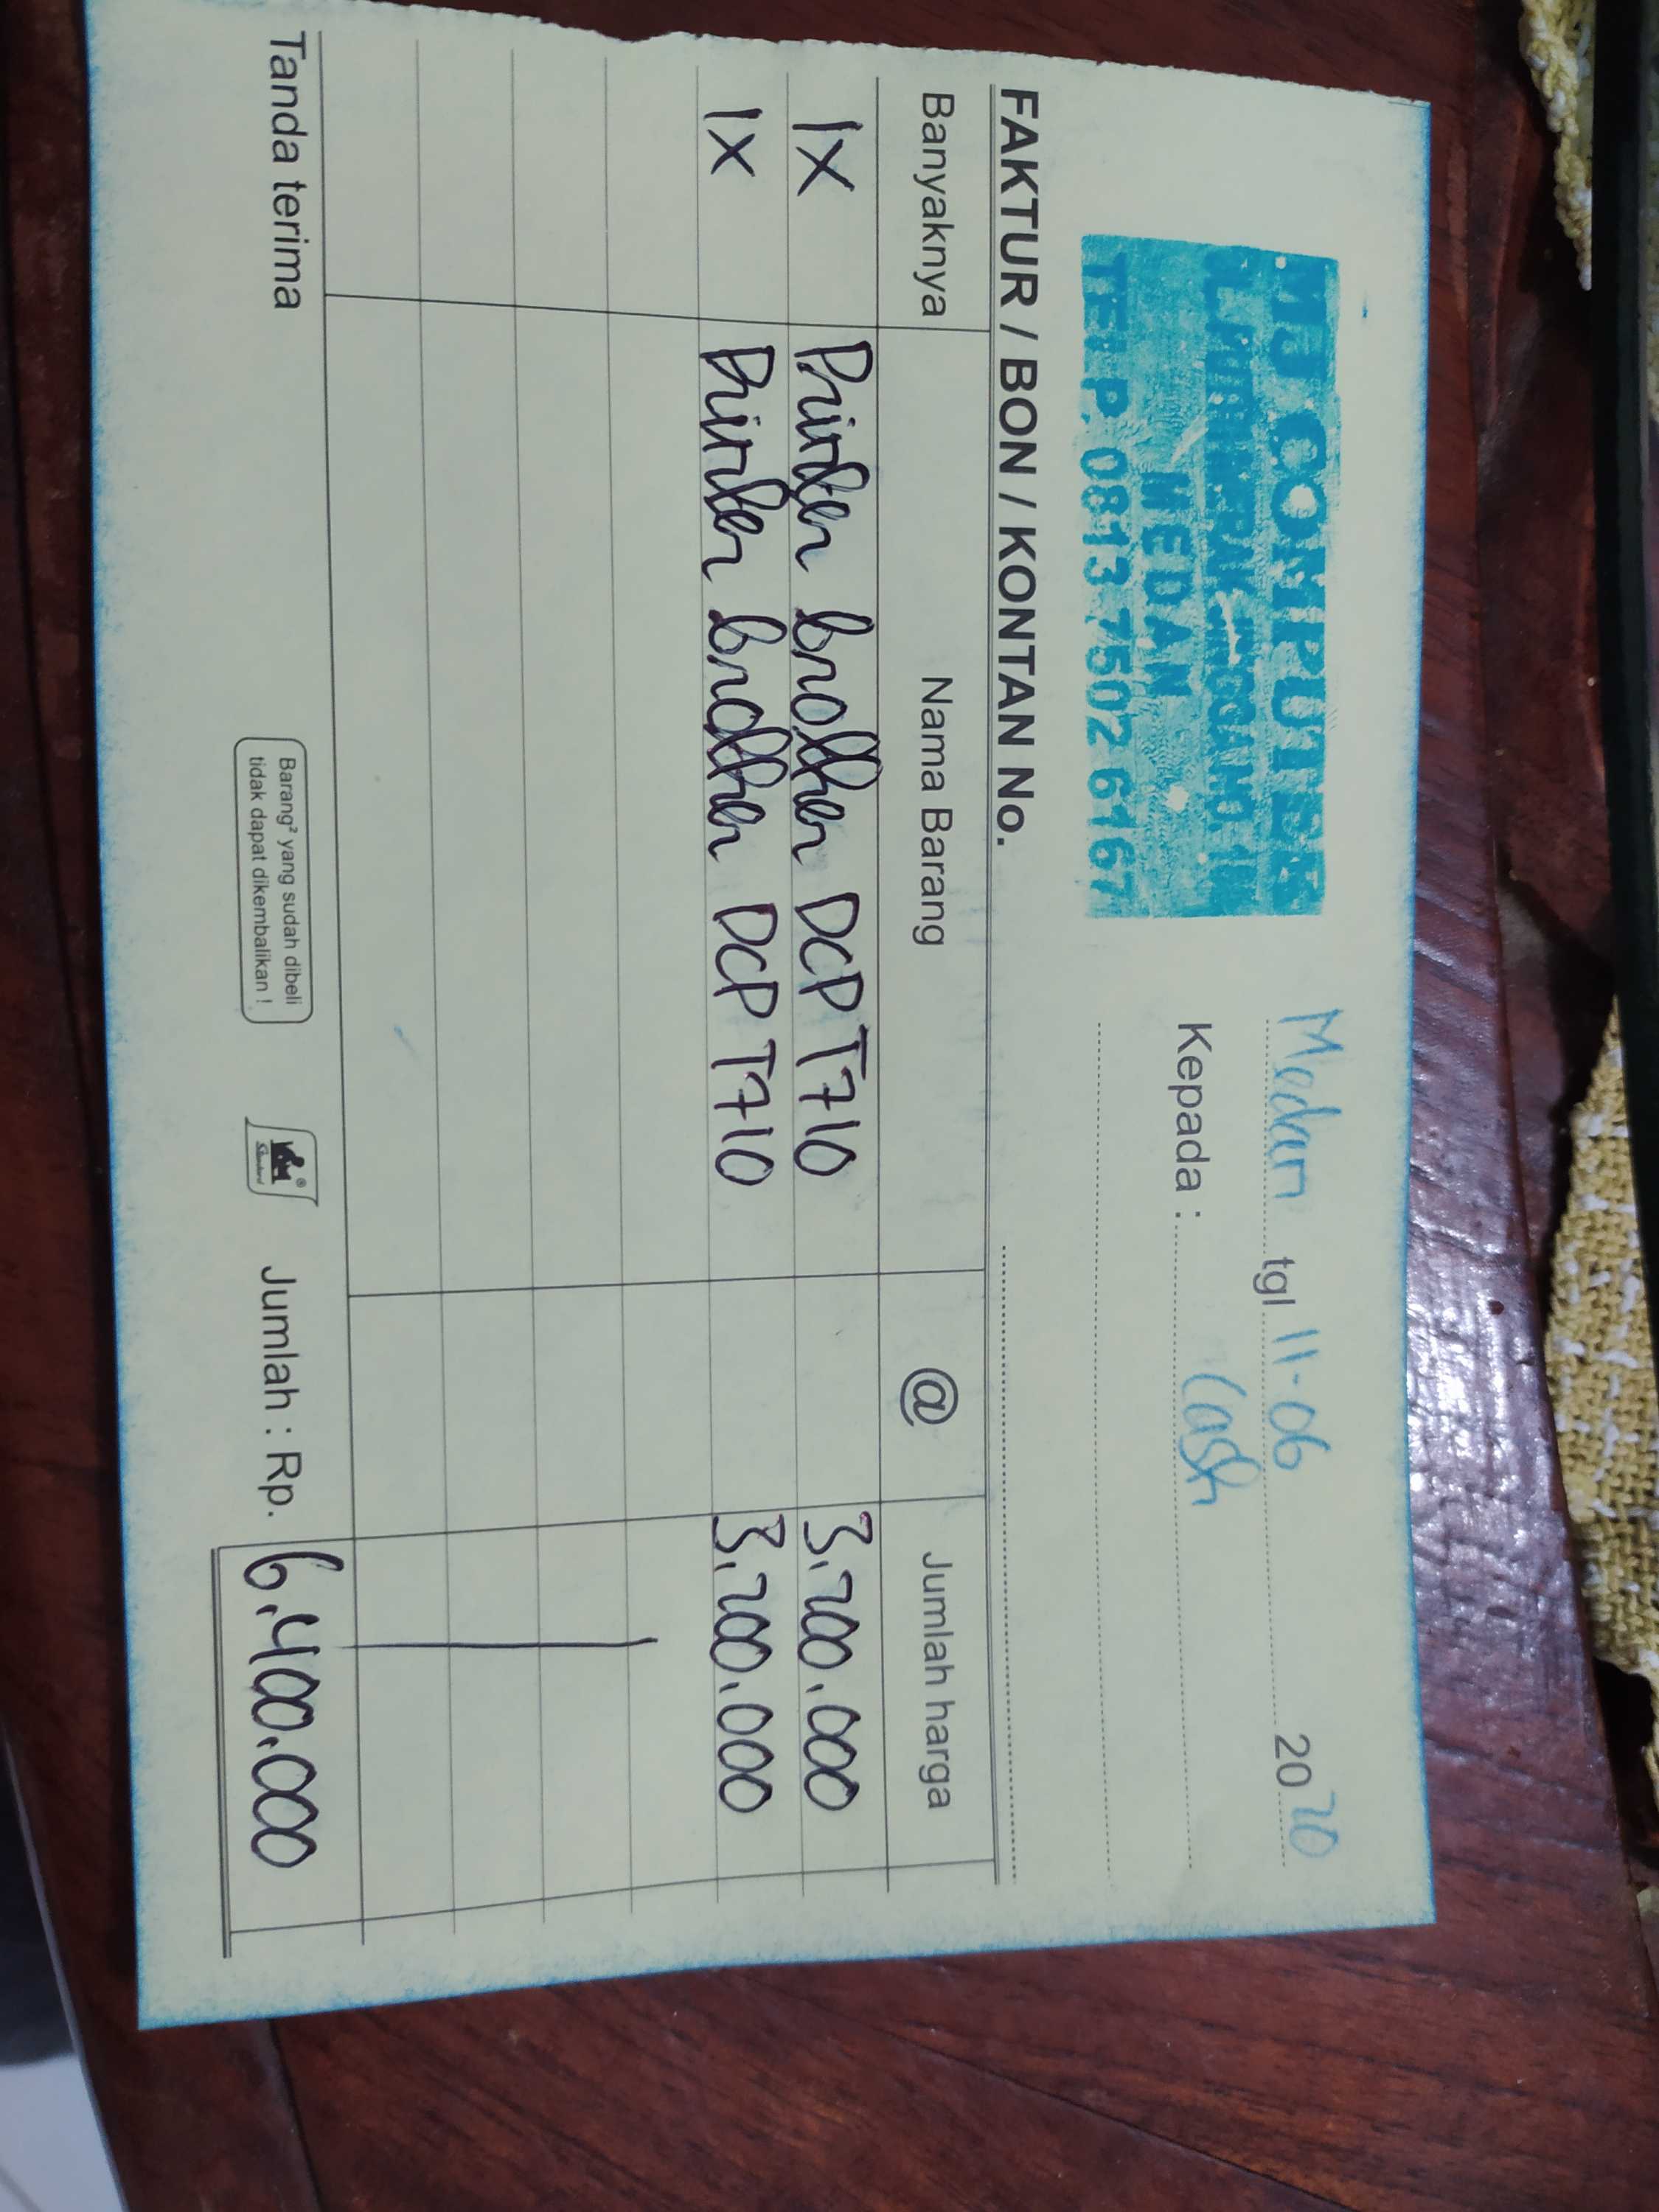 MJ COMPUTER
MEDAN
TELP. 0813 7502 6167
Medan tgl 11-06 2020
Kepada : Cash
FAKTUR / BON / KONTAN No.
Banyaknya Nama Barang @ Jumlah harga
1X Printer brother DCP T710 3.200.000
1X Printer brother DCP T710 3.200.000
Tanda terima
Barang² yang sudah dibeli
tidak dapat dikembalikan !
Jumlah : Rp. 6.400.000